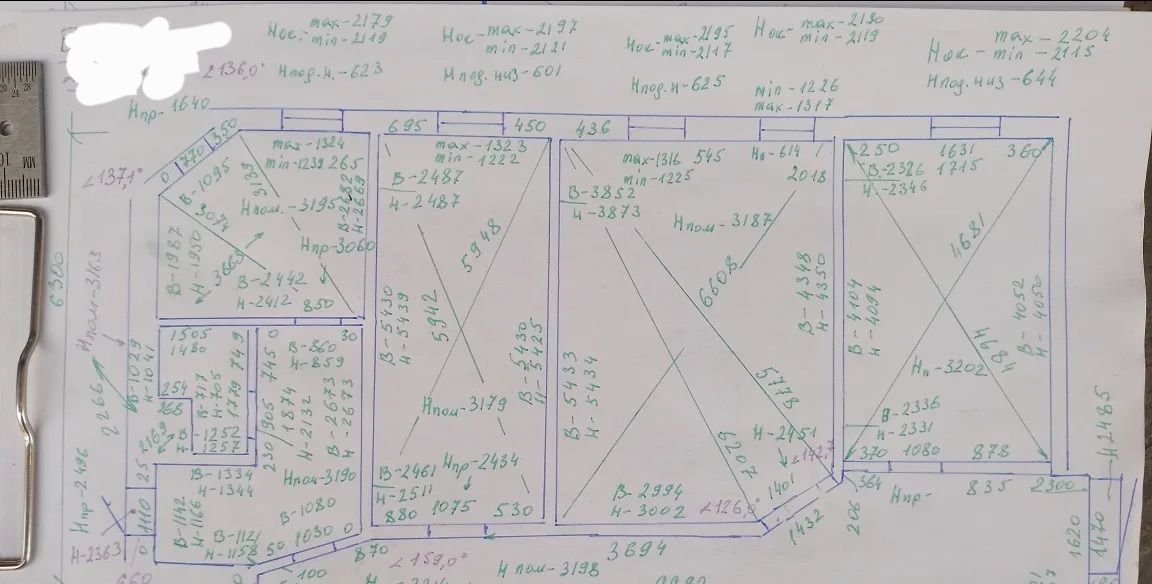 Нок- max-2179
min-2119
Нпод.н.-623
Нок- max-2197
min-2121
Нпод.низ-601
Нок- max-2195
min-2117
Нпод.н-625
Нок- max-2130
min-2119
min-1226
max-1317
Нок- max-2204
min-2115
Нпод.низ-644
∠136,0°
Нпр-1640
∠137,1°
0
770
350
В-1095
max-1324
min-1239
265
3139
Нпом.-3195
3074
В-2682
Н-2669
Нпр-3060
В-1987
Н-1950
3663
В-2442
Н-2412
850
6300
Нпом-3163
2266
В-1029
Н-1041
1505
1480
254
268
В-717
Н-705
1779
749
В-1252
Н-1257
2169
25
1110
0
Нпр-2496
Н-2363
660
0
30
В-860
Н-859
745
905
230
1874
Н-2132
В-2673
Н-2673
Нпом-3190
В-1334
Н-1344
В-1142
Н-1166
В-1121
Н-1158
В-1080
50
1030
0
100
695
450
max-1323
min-1222
В-2487
Н-2487
5948
5942
В-5430
Н-5439
В-5430
Н-5425
Нпом-3179
В-2461
Н-2511
Нпр-2434
880
1075
530
870
∠159,0°
436
max-1316
min-1225
545
Нп-614
2018
В-3852
Н-3873
Нпом-3187
6608
В-4348
Н-4350
В-5433
Н-5434
5778
7209
Н-2451
∠142,7
В-2994
Н-3002
∠126,0°
1401
1432
3694
Нпом-3198
250
1631
360
В-2326
Н-2346
1715
4681
В-4104
Н-4094
В-4052
Н-4050
Нп-3202
4684
В-2336
Н-2331
370
1080
878
364
206
Нпр-
835
2300
Н-2485
1620
1470